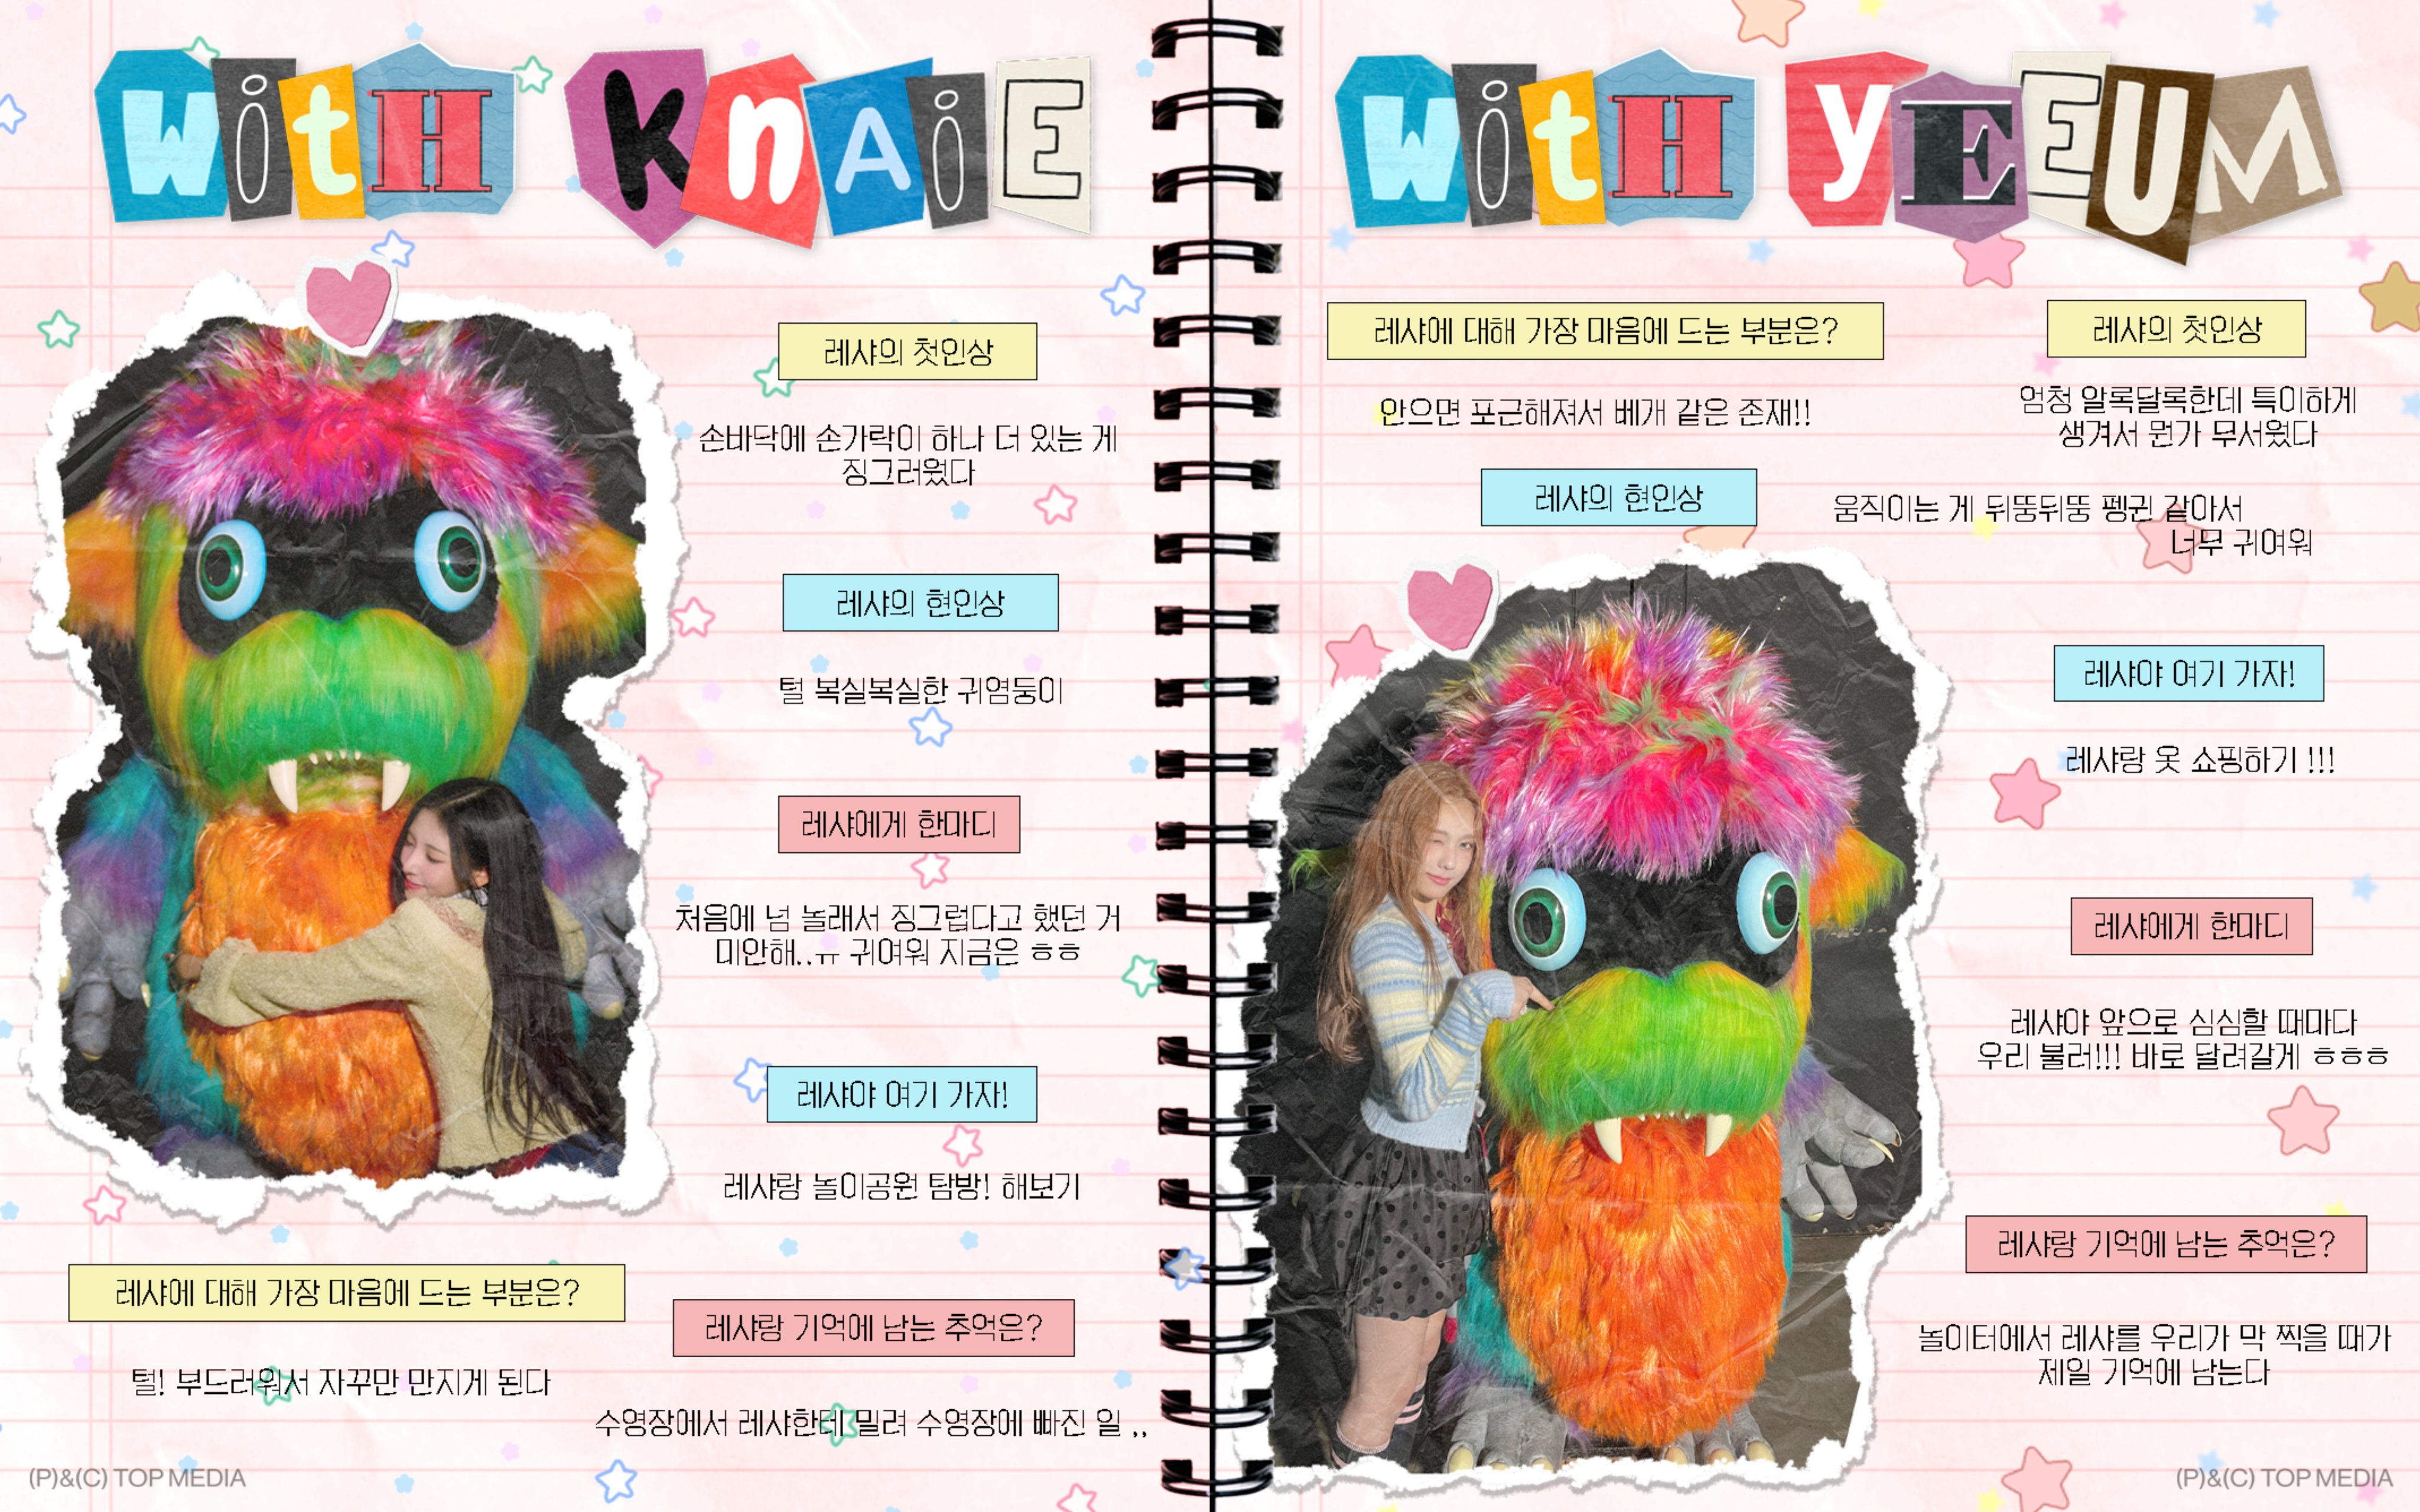 WitH KnAiE
레샤의 첫인상
손바닥에 손가락이 하나 더 있는 게
징그러웠다
레샤의 현인상
털 복실복실한 귀염둥이
레샤에게 한마디
처음에 넘 놀래서 징그럽다고 했던 거
미안해..ㅠ 귀여워 지금은 ㅎㅎ
레샤야 여기 가자!
레샤랑 놀이공원 탐방! 해보기
레샤에 대해 가장 마음에 드는 부분은?
털! 부드러워서 자꾸만 만지게 된다
레샤랑 기억에 남는 추억은?
수영장에서 레샤한테 밀려 수영장에 빠진 일 ,,
(P)&(C) TOP MEDIA
WitH YEEUM
레샤에 대해 가장 마음에 드는 부분은?
안으면 포근해져서 베개 같은 존재!!
레샤의 첫인상
엄청 알록달록한데 특이하게
생겨서 뭔가 무서웠다
레샤의 현인상
움직이는 게 뒤뚱뒤뚱 펭귄 같아서
너무 귀여워
레샤야 여기 가자!
레샤랑 옷 쇼핑하기 !!!
레샤에게 한마디
레샤야 앞으로 심심할 때마다
우리 불러!!! 바로 달려갈게 ㅎㅎㅎ
레샤랑 기억에 남는 추억은?
놀이터에서 레샤를 우리가 막 찍을 때가
제일 기억에 남는다
(P)&(C) TOP MEDIA